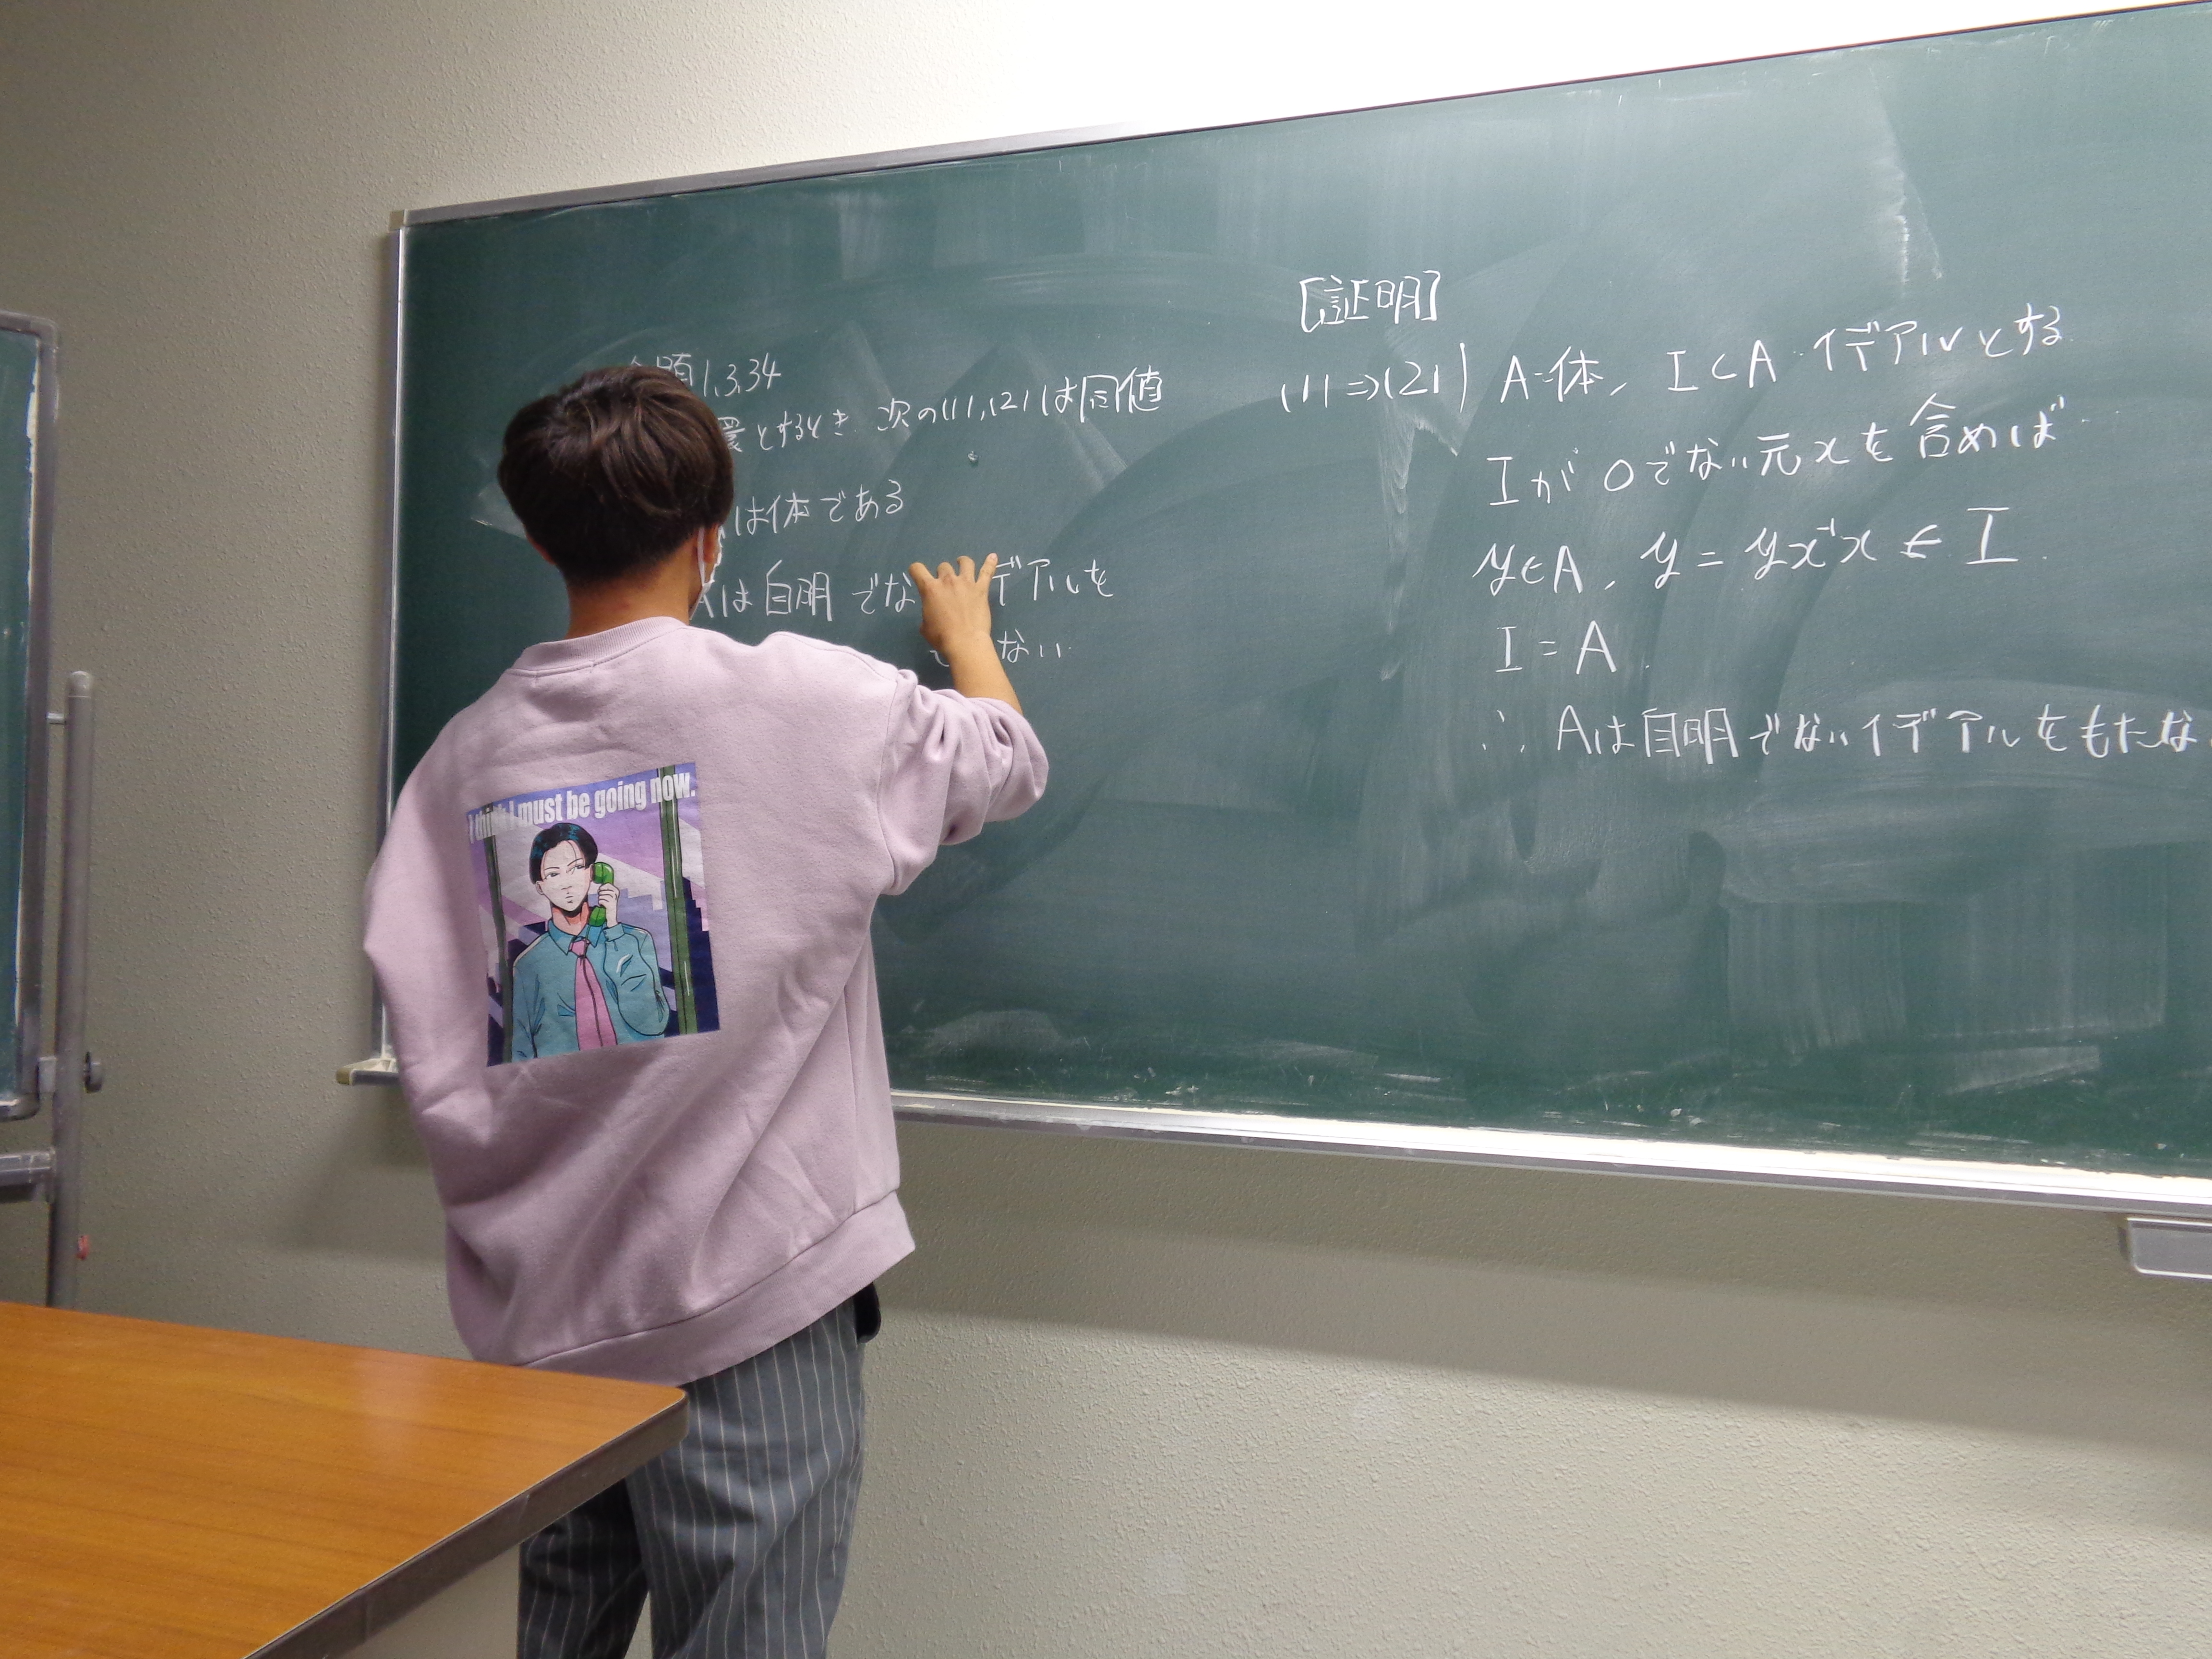 題1.3.34
環とするとき 次の(1),(2)は同値
は体である
Aは自明でな デアルを
ない
[証明]
(1)⇒(2)) A:体, I⊂A イデアルとする
Iが0でない元xを含めば
y∈A, y = yx⁻¹x ∈ I.
I = A.
∴ Aは自明でないイデアルをもたな
I think I must be going now.